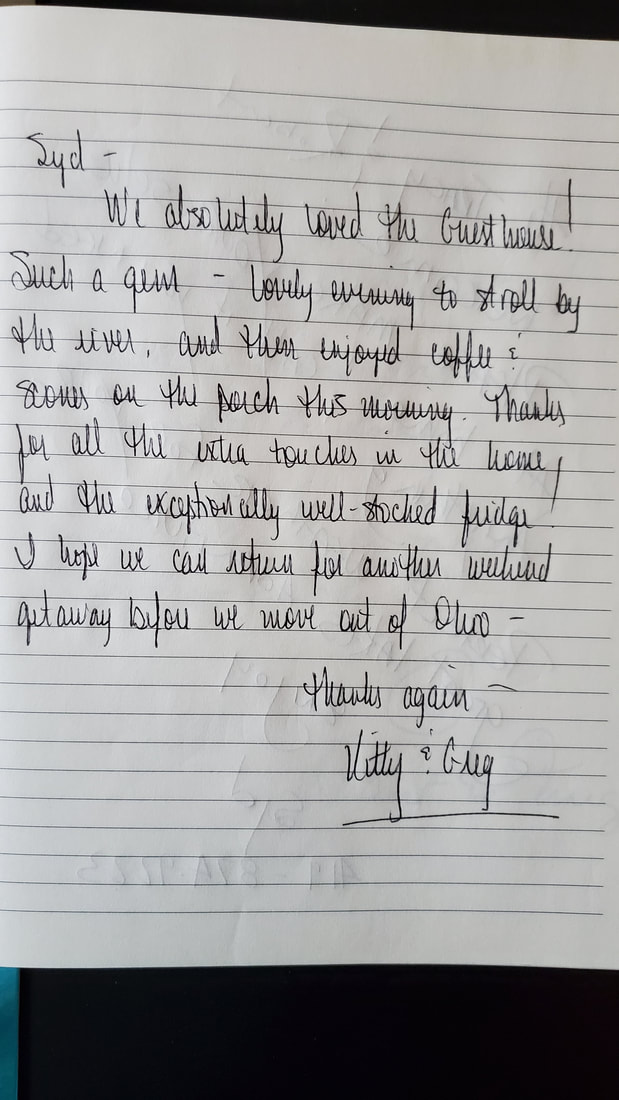 Syd -
We absolutely loved the Guesthouse!
Such a gem - lovely evening to stroll by
the river, and then enjoyed coffee &
scones on the porch this morning. Thanks
for all the extra touches in the home,
and the exceptionally well-stocked fridge!
I hope we can return for another weekend
getaway before we move out of Ohio -
thanks again -
Kitty & Greg